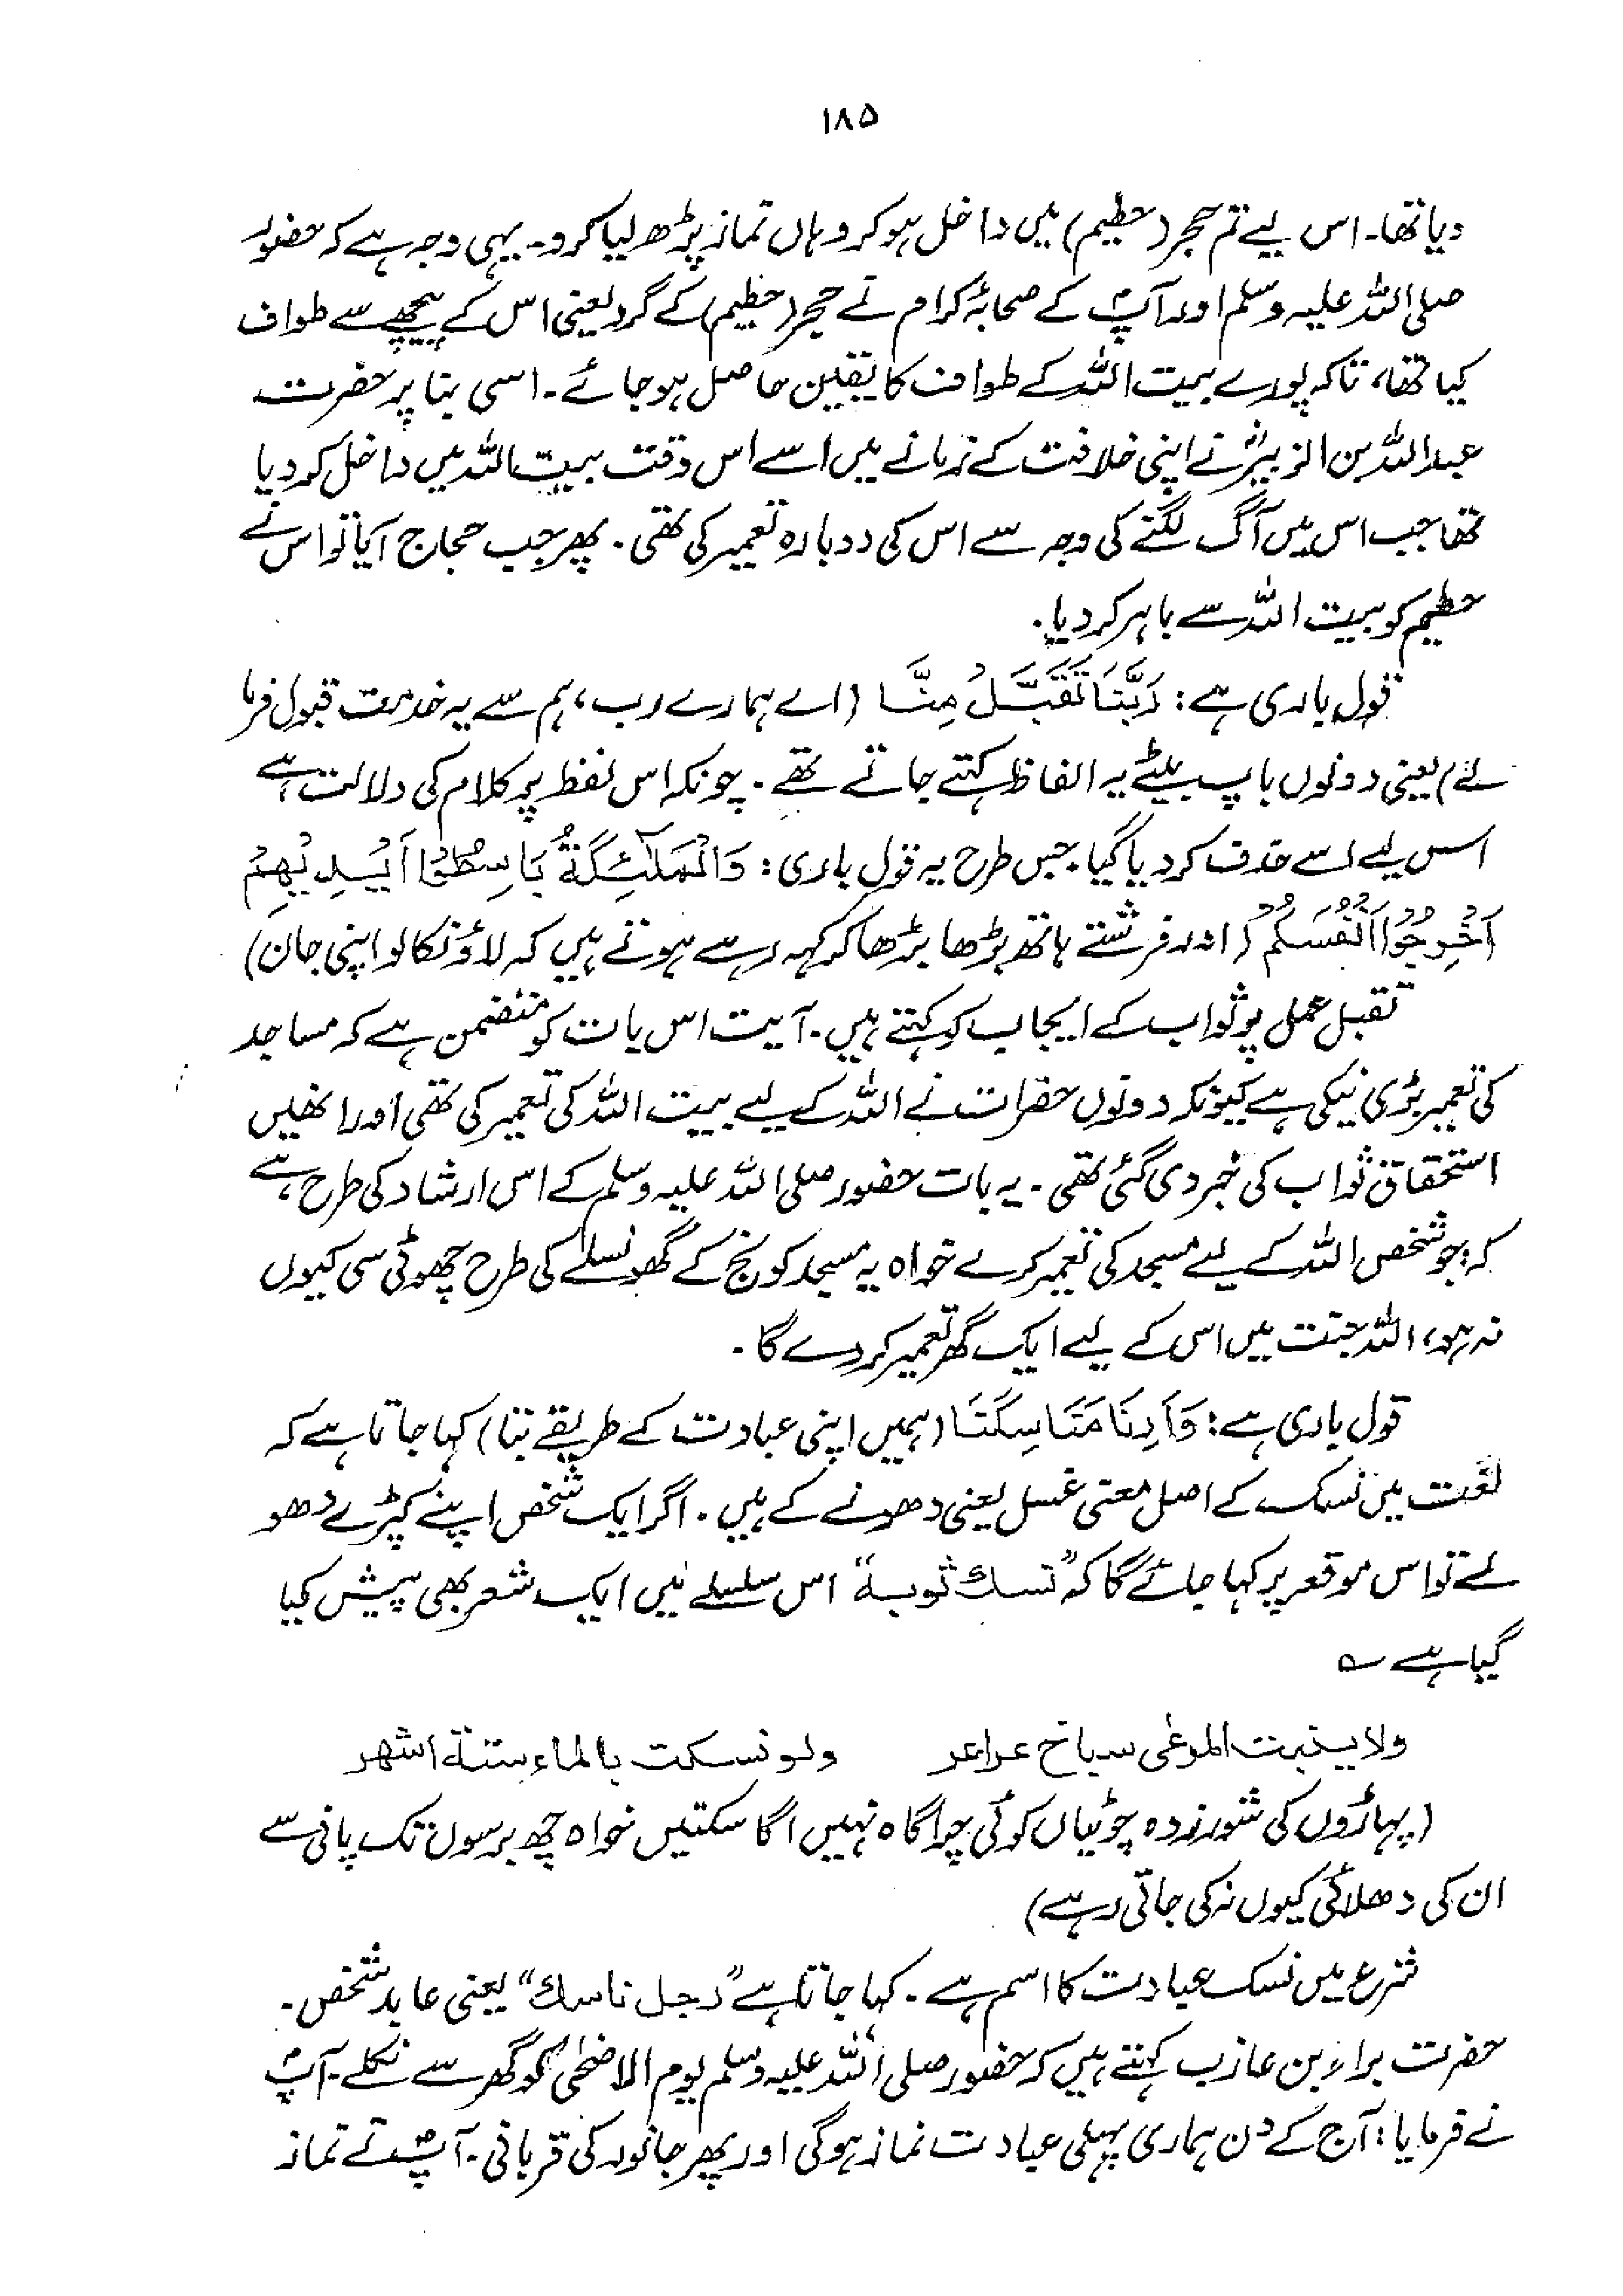 ۱۸۵
دیا تھا۔ اس لیے تم حجر (حطیم) میں داخل ہو کر وہاں نماز پڑھ لیا کرو۔ یہی وجہ ہے کہ حضور
صلی اللہ علیہ وسلم اور آپؐ کے صحابہ کرام نے حجر (حطیم) کے گرد یعنی اس کے پیچھے سے طواف
کیا تھا، تاکہ پورے بیت اللہ کے طواف کا یقین حاصل ہو جائے۔ اسی بنا پر حضرت
عبداللہ بن الزبیرؓ نے اپنی خلافت کے زمانے میں اسے اس وقت بیت اللہ میں داخل کر دیا
تھا جب اس میں آگ لگنے کی وجہ سے اس کی دوبارہ تعمیر کی تھی۔ پھر جب حجاج آیا تو اس نے
حطیم کو بیت اللہ سے باہر کر دیا۔
قول باری ہے: رَبَّنَا تَقَبَّلْ مِنَّا (اے ہمارے رب، ہم سے یہ خدمت قبول فرما
لے) یعنی دونوں باپ بیٹے یہ الفاظ کہتے جاتے تھے۔ چونکہ اس لفظ پر کلام کی دلالت ہے
اس لیے اسے حذف کر دیا گیا۔ جس طرح یہ قول باری: وَالْمَلٰٓئِكَةُ بَاسِطُوْٓا اَيْدِيْهِمْ
اَخْرِجُوْٓا اَنْفُسَكُمْ (اور فرشتے ہاتھ بڑھا بڑھا کر کہہ رہے ہوتے ہیں کہ لاؤ نکالو اپنی جان)
تقبل عمل پر ثواب کے ایجاب کو کہتے ہیں۔ آیت اس بات کو متضمن ہے کہ مساجد
کی تعمیر بڑی نیکی ہے کیونکہ دونوں حضرات نے اللہ کے لیے بیت اللہ کی تعمیر کی تھی اور انھیں
استحقاق ثواب کی خبر دی گئی تھی۔ یہ بات حضور صلی اللہ علیہ وسلم کے اس ارشاد کی طرح ہے
کہ: جو شخص اللہ کے لیے مسجد کی تعمیر کرے خواہ یہ مسجد کونج کے گھونسلے کی طرح چھوٹی سی کیوں
نہ ہو، اللہ جنت میں اس کے لیے ایک گھر تعمیر کر دے گا۔
قول باری ہے: وَاَرِنَا مَنَاسِكَنَا (ہمیں اپنی عبادت کے طریقے بتا) کہا جاتا ہے کہ
لغت میں نسک کے اصل معنی غسل یعنی دھونے کے ہیں۔ اگر ایک شخص اپنے کپڑے دھو
لے تو اس موقعہ پر کہا جائے گا کہ "نسك ثوبه" اس سلسلے میں ایک شعر بھی پیش کیا
گیا ہے ؎
ولا ينبت المرعى سباخ عراعر ولو نسكت بالماء ستة اشهر
(پہاڑوں کی شور زدہ چوٹیاں کوئی چراگاہ نہیں اگا سکتیں خواہ چھ برسوں تک پانی سے
ان کی دھلائی کیوں نہ کی جاتی رہے)
شرع میں نسک عبادت کا اسم ہے۔ کہا جاتا ہے "رجل ناسك" یعنی عابد شخص۔
حضرت براء بن عازب کہتے ہیں کہ حضور صلی اللہ علیہ وسلم یوم الاضحیٰ کو گھر سے نکلے۔ آپؐ
نے فرمایا: آج کے دن ہماری پہلی عبادت نماز ہوگی اور پھر جانور کی قربانی۔ آپؐ نے نماز